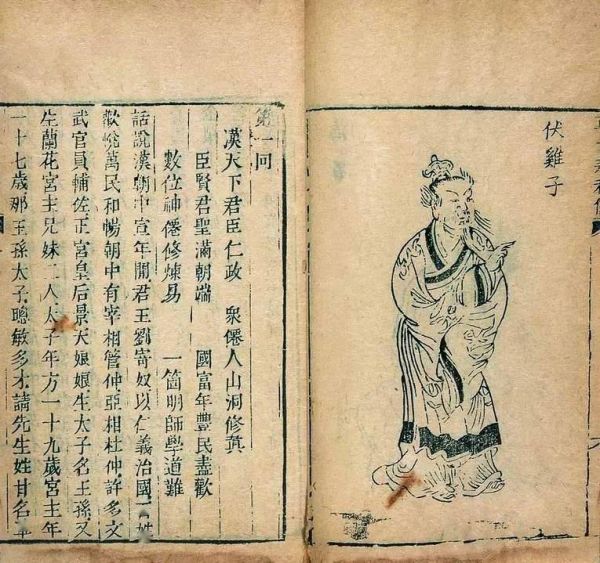 伏雞子
第一回
漢天下君臣仁政　衆僊人山洞修眞
臣賢君聖滿朝端　國富年豐民盡歡
數位神僊修煉易　一箇明師學道難
話說漢朝中宣年間君王劉寄奴以仁義治國百姓
歡悅萬民和暢朝中有宰相管仲亞相杜仲許多文
武官員輔佐正宮皇后景天娘娘生太子名王孫又
生蘭花宮主兄妹二人太子年方一十九歲宮主年
一十七歲那王孫太子聰敏多才請先生姓甘名草